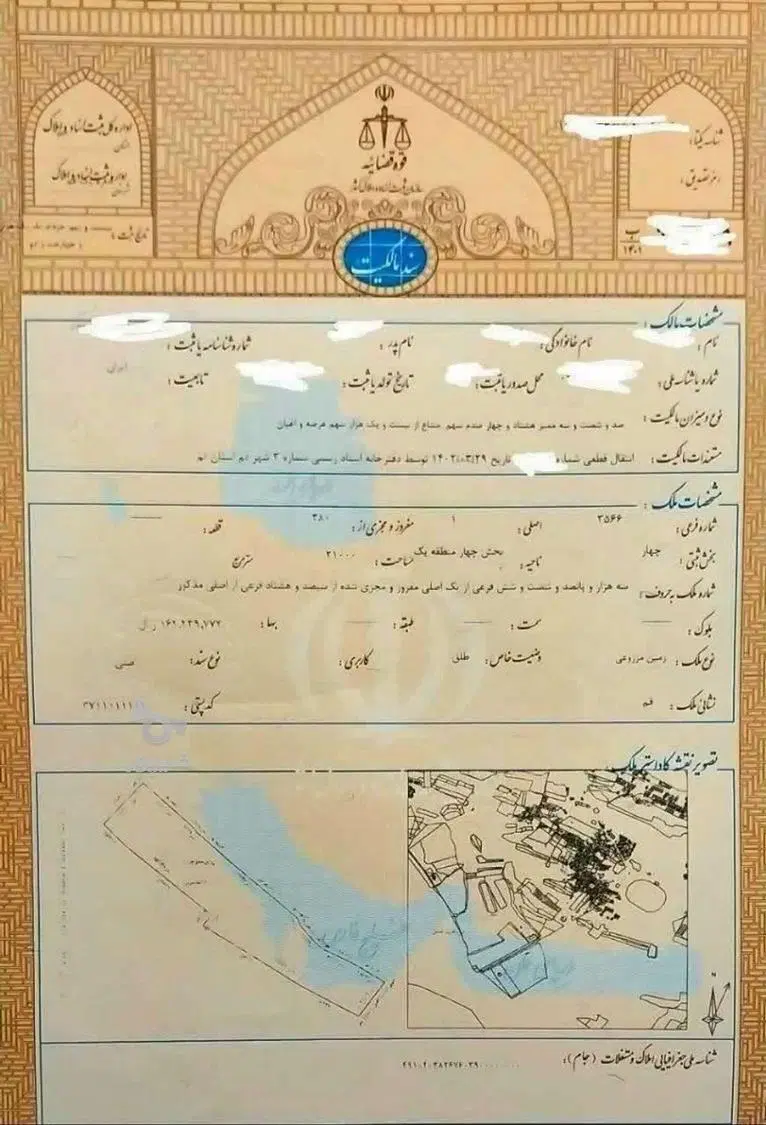 اداره کل ثبت اسناد و املاک
استان
اداره ثبت اسناد و املاک
قوه قضائیه
سازمان ثبت اسناد و املاک کشور
شناسه یکتا:
رمز تصدیق:
تاریخ ثبت:
ب
۱۴۰۱
سند مالکیت
مشخصات مالک:
نام: نام خانوادگی: نام پدر: شماره شناسنامه یا ثبت:
شماره یا شناسه ملی: محل صدور یا ثبت: تاریخ تولد یا ثبت: تابعیت: ایران
نوع و میزان مالکیت: صد و شصت و سه ممیز هشتاد و چهار صدم سهم مشاع از بیست و یک هزار سهم عرصه و اعیان
مستندات مالکیت: انتقال قطعی شماره تاریخ ۱۴۰۲/۰۳/۲۹ توسط دفترخانه اسناد رسمی شماره ۳ شهر قم استان قم
مشخصات ملک:
شماره فرعی: ۳۵۶۶ اصلی: ۱ مفروز و مجزی از: ۳۸۰ قطعه:
بخش ثبتی: چهار ناحیه: بخش چهار منطقه یک مساحت: ۲۱۰۰۰ مترمربع
شماره ملک به حروف: سه هزار و پانصد و شصت و شش فرعی از یک اصلی مفروز و مجزی شده از سیصد و هشتاد فرعی از اصلی مذکور
بلوک: سمت: طبقه: بها: ریال
نوع ملک: زمین مزروعی وضعیت خاص: طلق کاربری: نوع سند:
نشانی ملک: قم کدپستی:
تصویر نقشه کاداستر ملک
خلیج فارس
دریای عمان
N
شناسه ملی جغرافیایی املاک و مستغلات (جام):